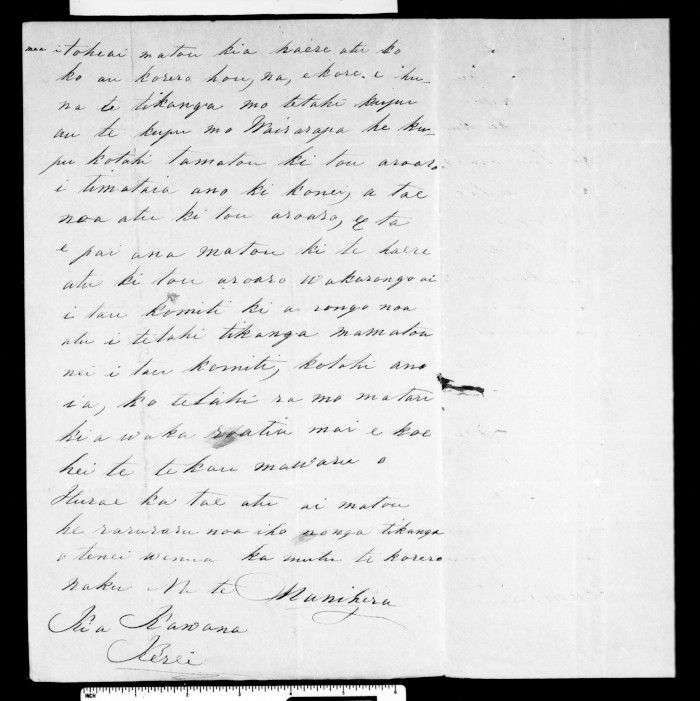 mea i tohe ai matou kia haere atu ko
ko au korero hou, na, ekore e hu-
na te tikanga mo tetahi kupu
au te kupu mo Wairarapa he ku-
pu kotahi tamatou ki tou aroaro
i timataia ano ki konei, a tae
noa atu ki tou aroaro, E ta
e pai ana matou ki te haere
atu ki tou aroaro wakarongo ai
i tau komiti ki a rongo noa
atu i tetahi tikanga mamatou
nei i tau komiti, kotahi ano
ia, ko tetahi ra mo matou
ki a waka mai e koe
hei te tekau mawaru o
Hurae ka tae atu ai matou
he raruraru noa iho nonga tikanga
o tenei wenua ka mutu te korero
naku Na te Manihera
Ki a Kawana
Kerei
INCH 1 2 3 4